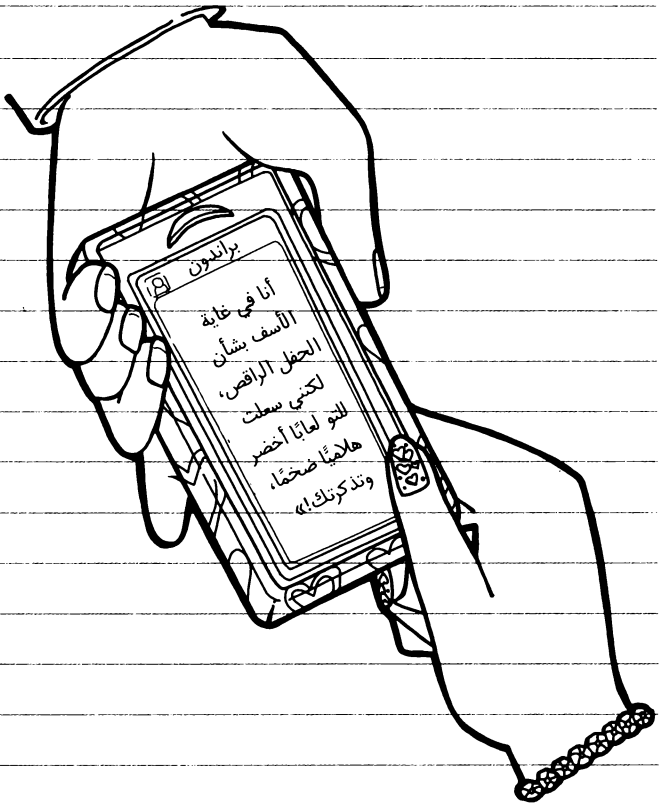 براندون
أنا في غاية
الأسف بشأن
الحفل الراقص،
لكنني سعلت
للتو لعابًا أخضر
هلاميًّا ضخمًا،
وتذكرتك!»